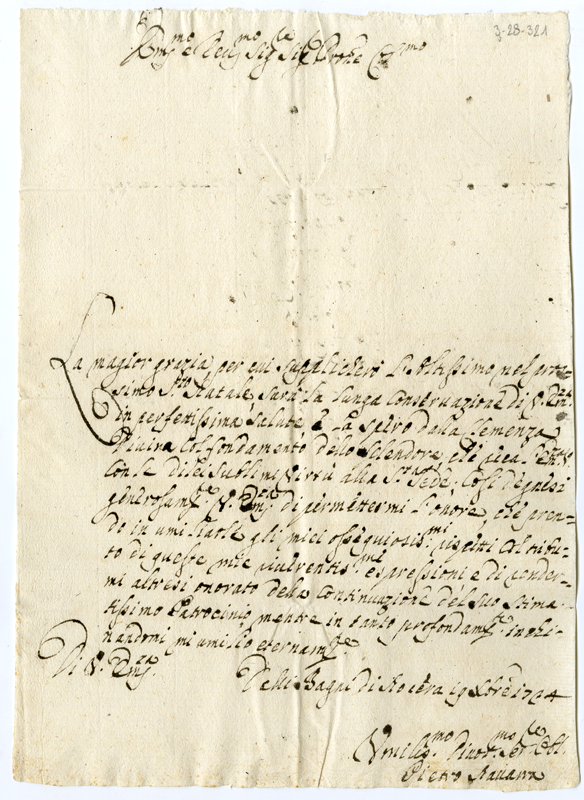 3-28-321
Em.mo e Rev.mo Sig.re Sig.re Prone Col.mo
La magior grazia, per cui supplicherò l'Altissimo, nel pros-
simo S.to Natale, sarà la lunga conservazione di V. Em.za
in perfettissima salute e la spero dalla Clemenza
Divina col fondamento dello splendore, che reca V. Em.za
con le di lei sublimi Virtù alla S.ta Sede. Così degnesi
generosam.te V. Em.za di permettermi l'onore, che pren-
do in umiliarle gli miei ossequiosis.mi rispetti col tribu-
to di queste mie riverentis.me espressioni e di render-
mi altresi onorato della Continuazione del suo stima-
tissimo Patrocinio mentre in tanto profondam.te inchi-
nandomi mi umilio eternam.te
Di V. Em.za
Delli Bagni di Nocera 19 Xbre 1724
Umilis.mo Divot.mo Ser.re Obl.
Pietro Navarra